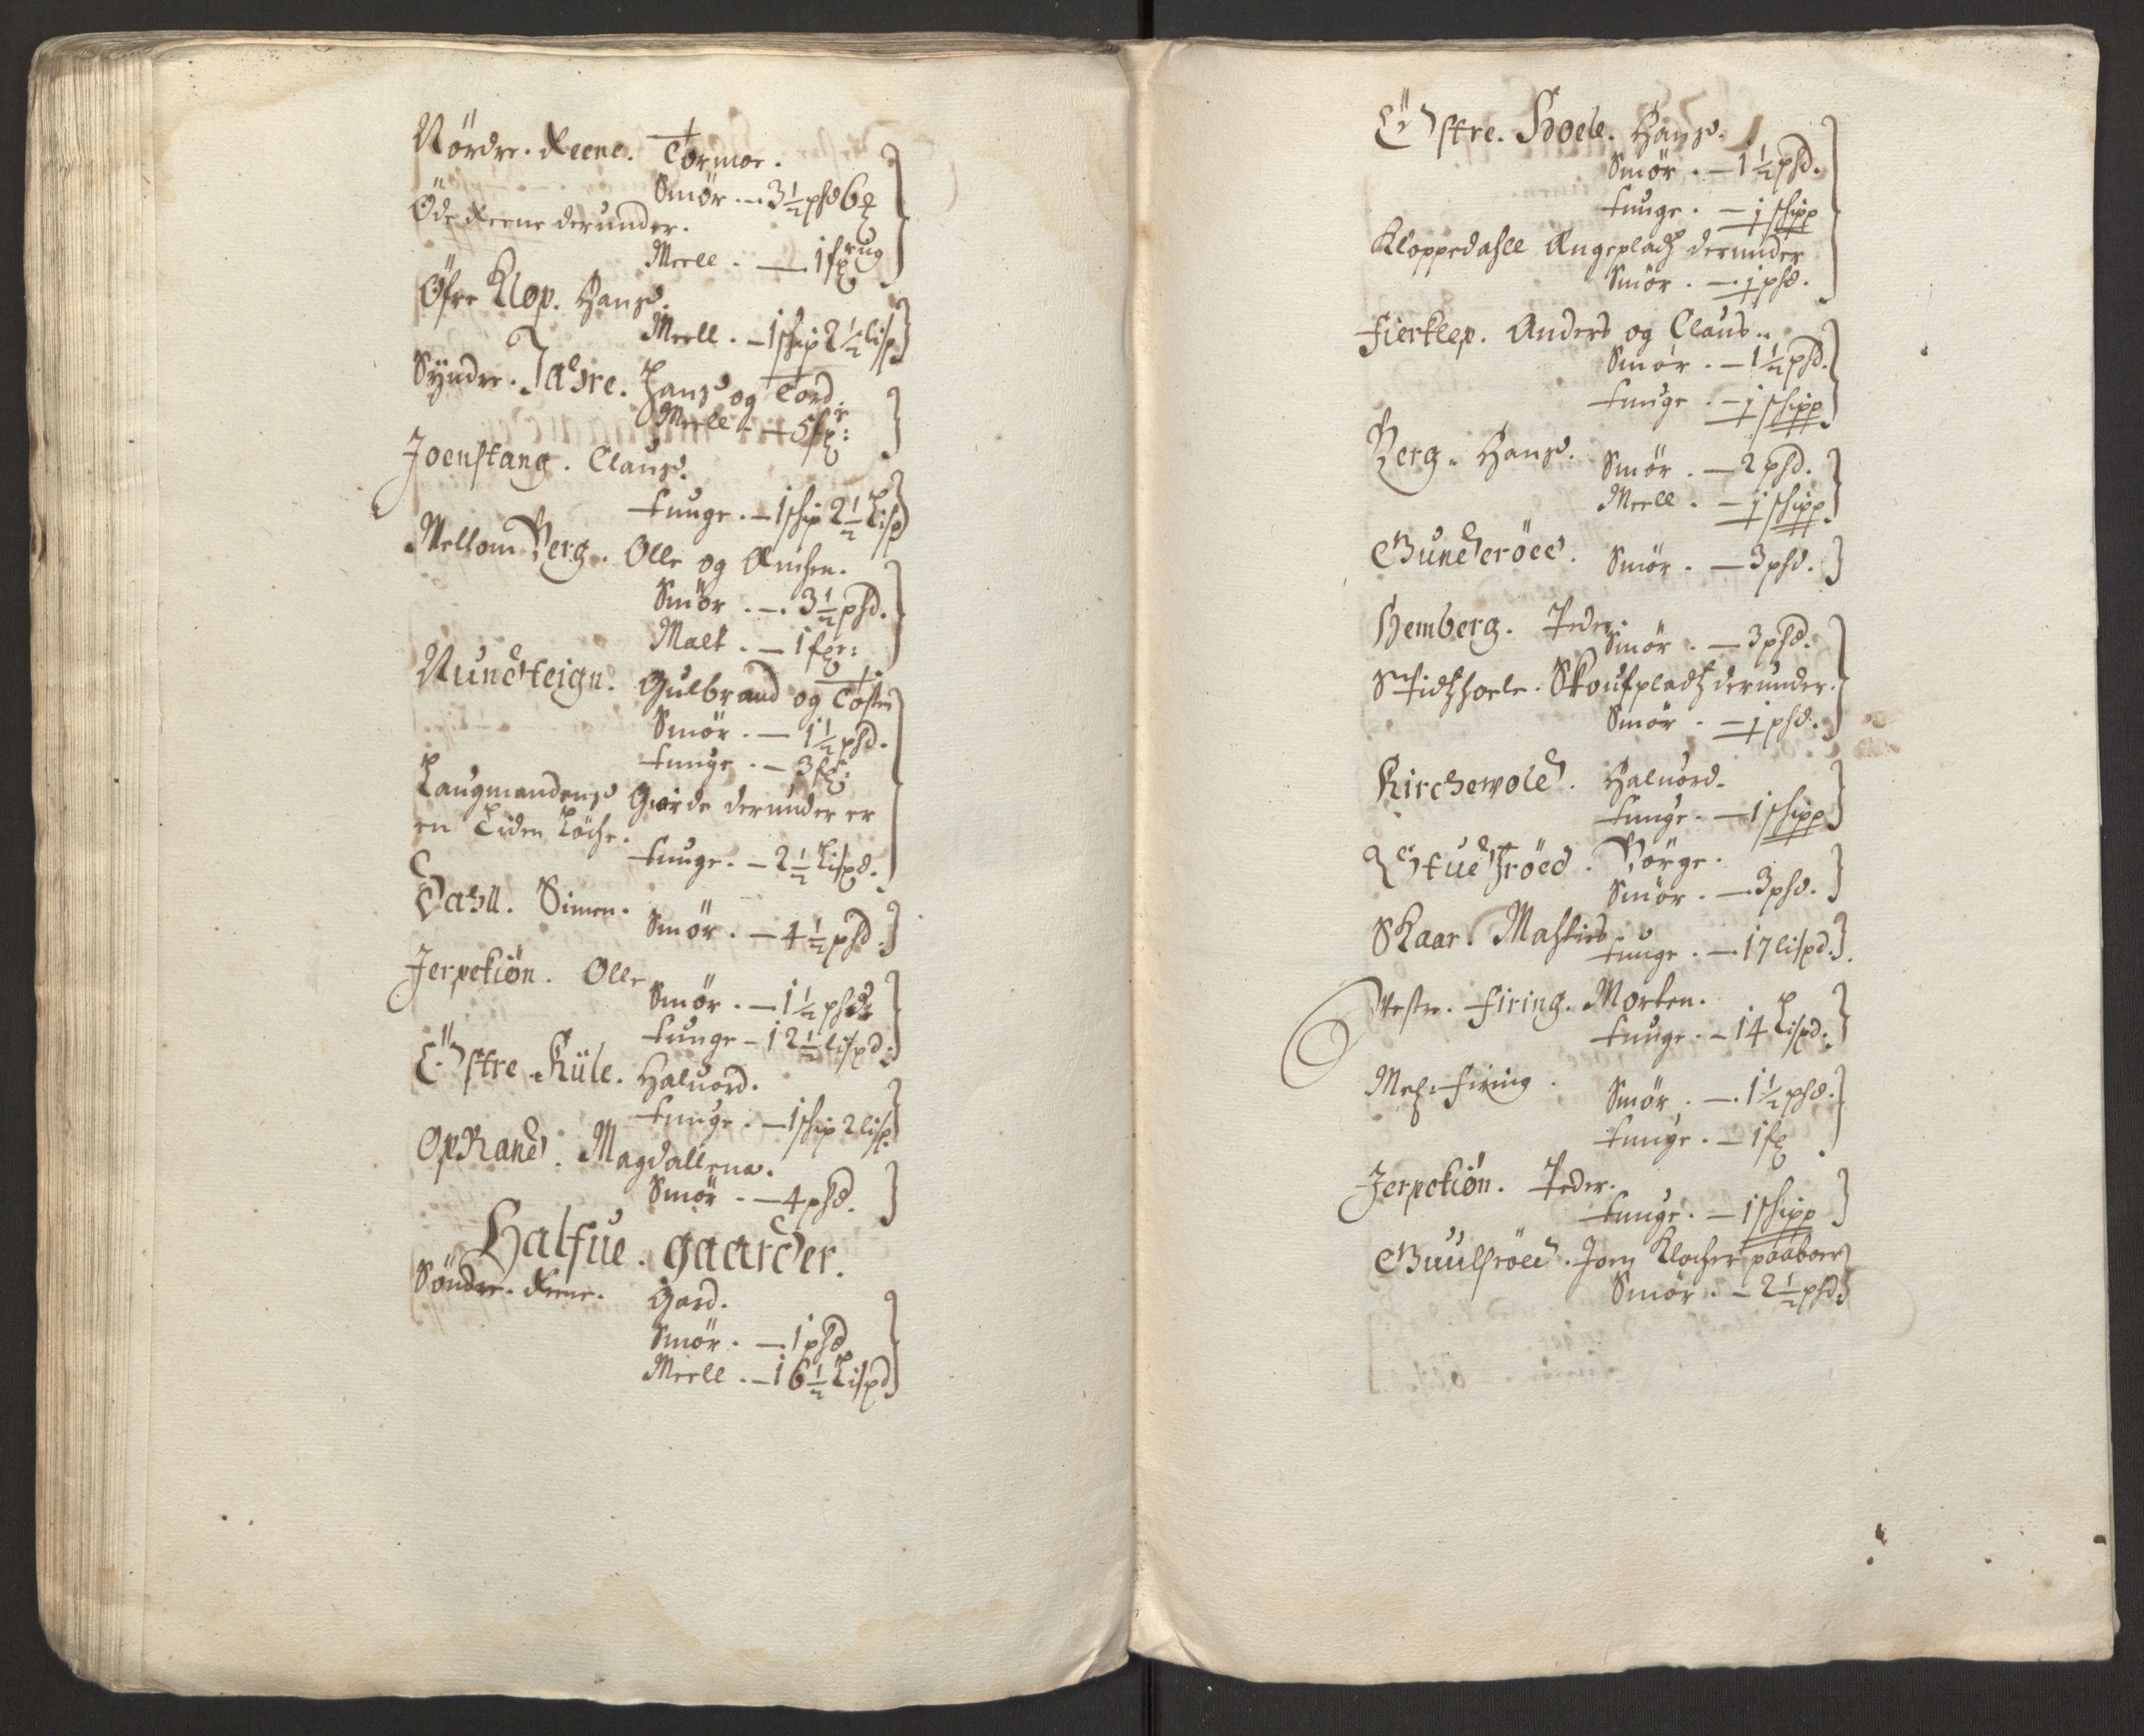 Nördre. Reene. Tormoe.
Smör. — 3½ phd 6
Öde Reene derunder.
Meell. — 1 rug
Öfre Klop. Hans.
Meell. — 1 ship 2½ lisp
Syndre. Jahre. Hans og Tord.
Meell. — 5
Joenstang. Claus.
tunge. — 1 ship 2½ Lisp
Mellom Berg. Olle og Anchen.
Smör. — 3½ phd.
Malt. — 1
Nundteign. Gulbrand og Tosten
Smör. — 1½ phd.
tunge. — 3
Laugmandens Gierde derunder er
en Liden Löche.
tunge. — 2½ Lispd.
Dahll. Simen.
Smör. — 4½ phd.
Jerpekiön. Olle
Smör. — 1½ phd
tunge — 12½ lispd.
Östre Küle. Haluord.
tunge. — 1 ship 2 lisp.
OpRand. Magdallena.
Smör. — 4 phd.
Halfue. gaarder.
Söndre. Reene. Gord.
Smör. — 1 phd
Meell. — 16½ Lispd
Östre. Hoele. Hans.
Smör. — 1½ phd.
tunge. — j shipp
Kloppedahll Angepladz derunder
Smör. — j phd.
Fierklep. Anders og Claus.
Smör. — 1½ phd.
tunge. — j shipp
Berg. Hans. Smör. — 2 phd.
Meell. — j shipp
Gunderöed. Smör. — 3 phd.
Hemberg. Peder.
Smör. — 3 phd.
Stidzhoele. Skoufpladz derunder.
Smör. — j phd.
Kirchewold. Haluord.
tunge. — 1 shipp
Stuedzröed. Börge.
Smör. — 3 phd.
Skaar. Mathies
tunge. — 17 lispd.
Vestre. Firing. Morten.
tunge. — 14 Lispd.
Mech. Firing. Smör. — 1½ phd.
tunge. — 1
Jerpekiön. Peder.
tunge. — 1 shipp
Guulsröed. Joen Klocher paaboer
Smör. — 2½ phd